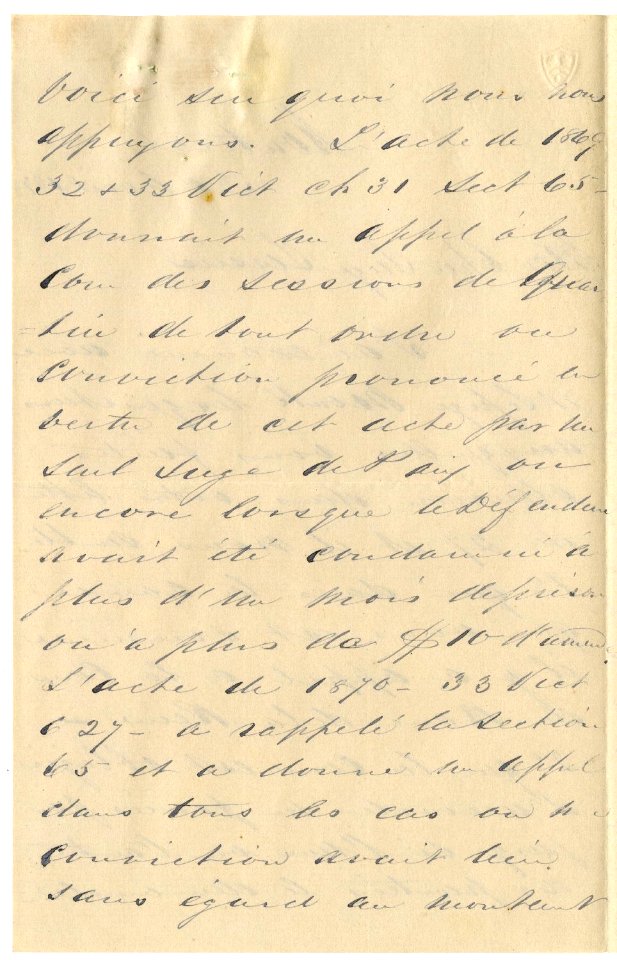 Voici sur quoi nous nous
appuyons. L'acte de 1869
32 & 33 Vict ch 31 Sect 65-
donnait un appel à la
Cour des sessions de Quar
=tier de tout ordre ou
conviction prononcé en
vertu de cet acte par un
seul Juge de Paix ou
encore lorsque le Défendeur
avait été condamné à
plus d'un mois de prison
ou à plus de $10 d'amende.
L'acte de 1870- 33 Vict
c 27- a rappelé la section
65 et a donné un appel
dans tous les cas ou une
conviction avait lieu
sans égard au montant